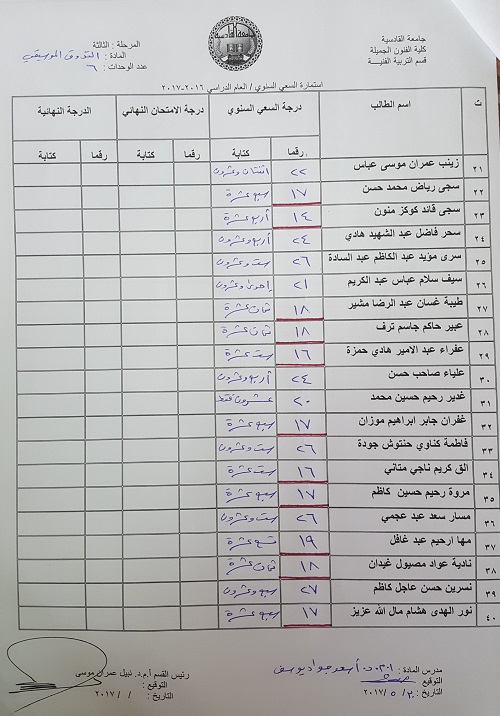 جامعة القادسية
كلية الفنون الجميلة
قسم التربية الفنية
المرحلة : الثالثة
المادة : التذوق الموسيقي
عدد الوحدات : ٦
استمارة السعي السنوي / العام الدراسي ٢٠١٦-٢٠١٧
ت اسم الطالب درجة السعي السنوي درجة الامتحان النهائي الدرجة النهائية
رقما كتابة رقما كتابة رقما كتابة
٢١ زينب عمران موسى عباس ٢٢ اثنتان وعشرون
٢٢ سجى رياض محمد حسن ١٧ سبع عشرة
٢٣ سجى قائد كوكز منون ١٤ أربع عشرة
٢٤ سحر فاضل عبد الشهيد هادي ٢٤ أربع وعشرون
٢٥ سرى مؤيد عبد الكاظم عبد السادة ٢٦ ست وعشرون
٢٦ سيف سلام عباس عبد الكريم ٢١ إحدى وعشرون
٢٧ طيبة غسان عبد الرضا مشير ١٨ ثمان عشرة
٢٨ عبير حاكم جاسم ترف ١٨ ثمان عشرة
٢٩ عفراء عبد الامير هادي حمزة ١٦ ست عشرة
٣٠ علياء صاحب حسن ٢٤ أربع وعشرون
٣١ غدير رحيم حسين محمد ٢٠ عشرون فقط
٣٢ غفران جابر ابراهيم موزان ١٧ سبع عشرة
٣٣ فاطمة كناوي حنتوش جودة ٢٦ ست وعشرون
٣٤ الق كريم ناجي متاني ١٦ ست عشرة
٣٥ مروة رحيم حسين كاظم ١٧ سبع عشرة
٣٦ مسار سعد عبد عجمي ٢٦ ست وعشرون
٣٧ مها ارحيم عبد غافل ١٩ تسع عشرة
٣٨ نادية عواد مصيول غيدان ١٨ ثمان عشرة
٣٩ نسرين حسن عاجل كاظم ٢٧ سبع وعشرون
٤٠ نور الهدى هشام مال الله عزيز ١٧ سبع عشرة
مدرس المادة : أ.م.د. أسعد جواد يوسف
التوقيع
التاريخ : / ٥ / ٢٠١٧
رئيس القسم أ.م.د. نبيل عمران موسى
التوقيع :
التاريخ : / / ٢٠١٧